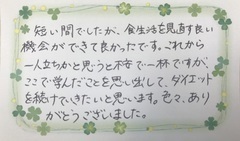 短い間でしたが、食生活を見直す良い
機会ができて良かったです。これから
一人立ちかと思うと不安で一杯ですが、
ここで学んだことを思い出して、ダイエット
を続けていきたいと思います。色々、あり
がとうございました。